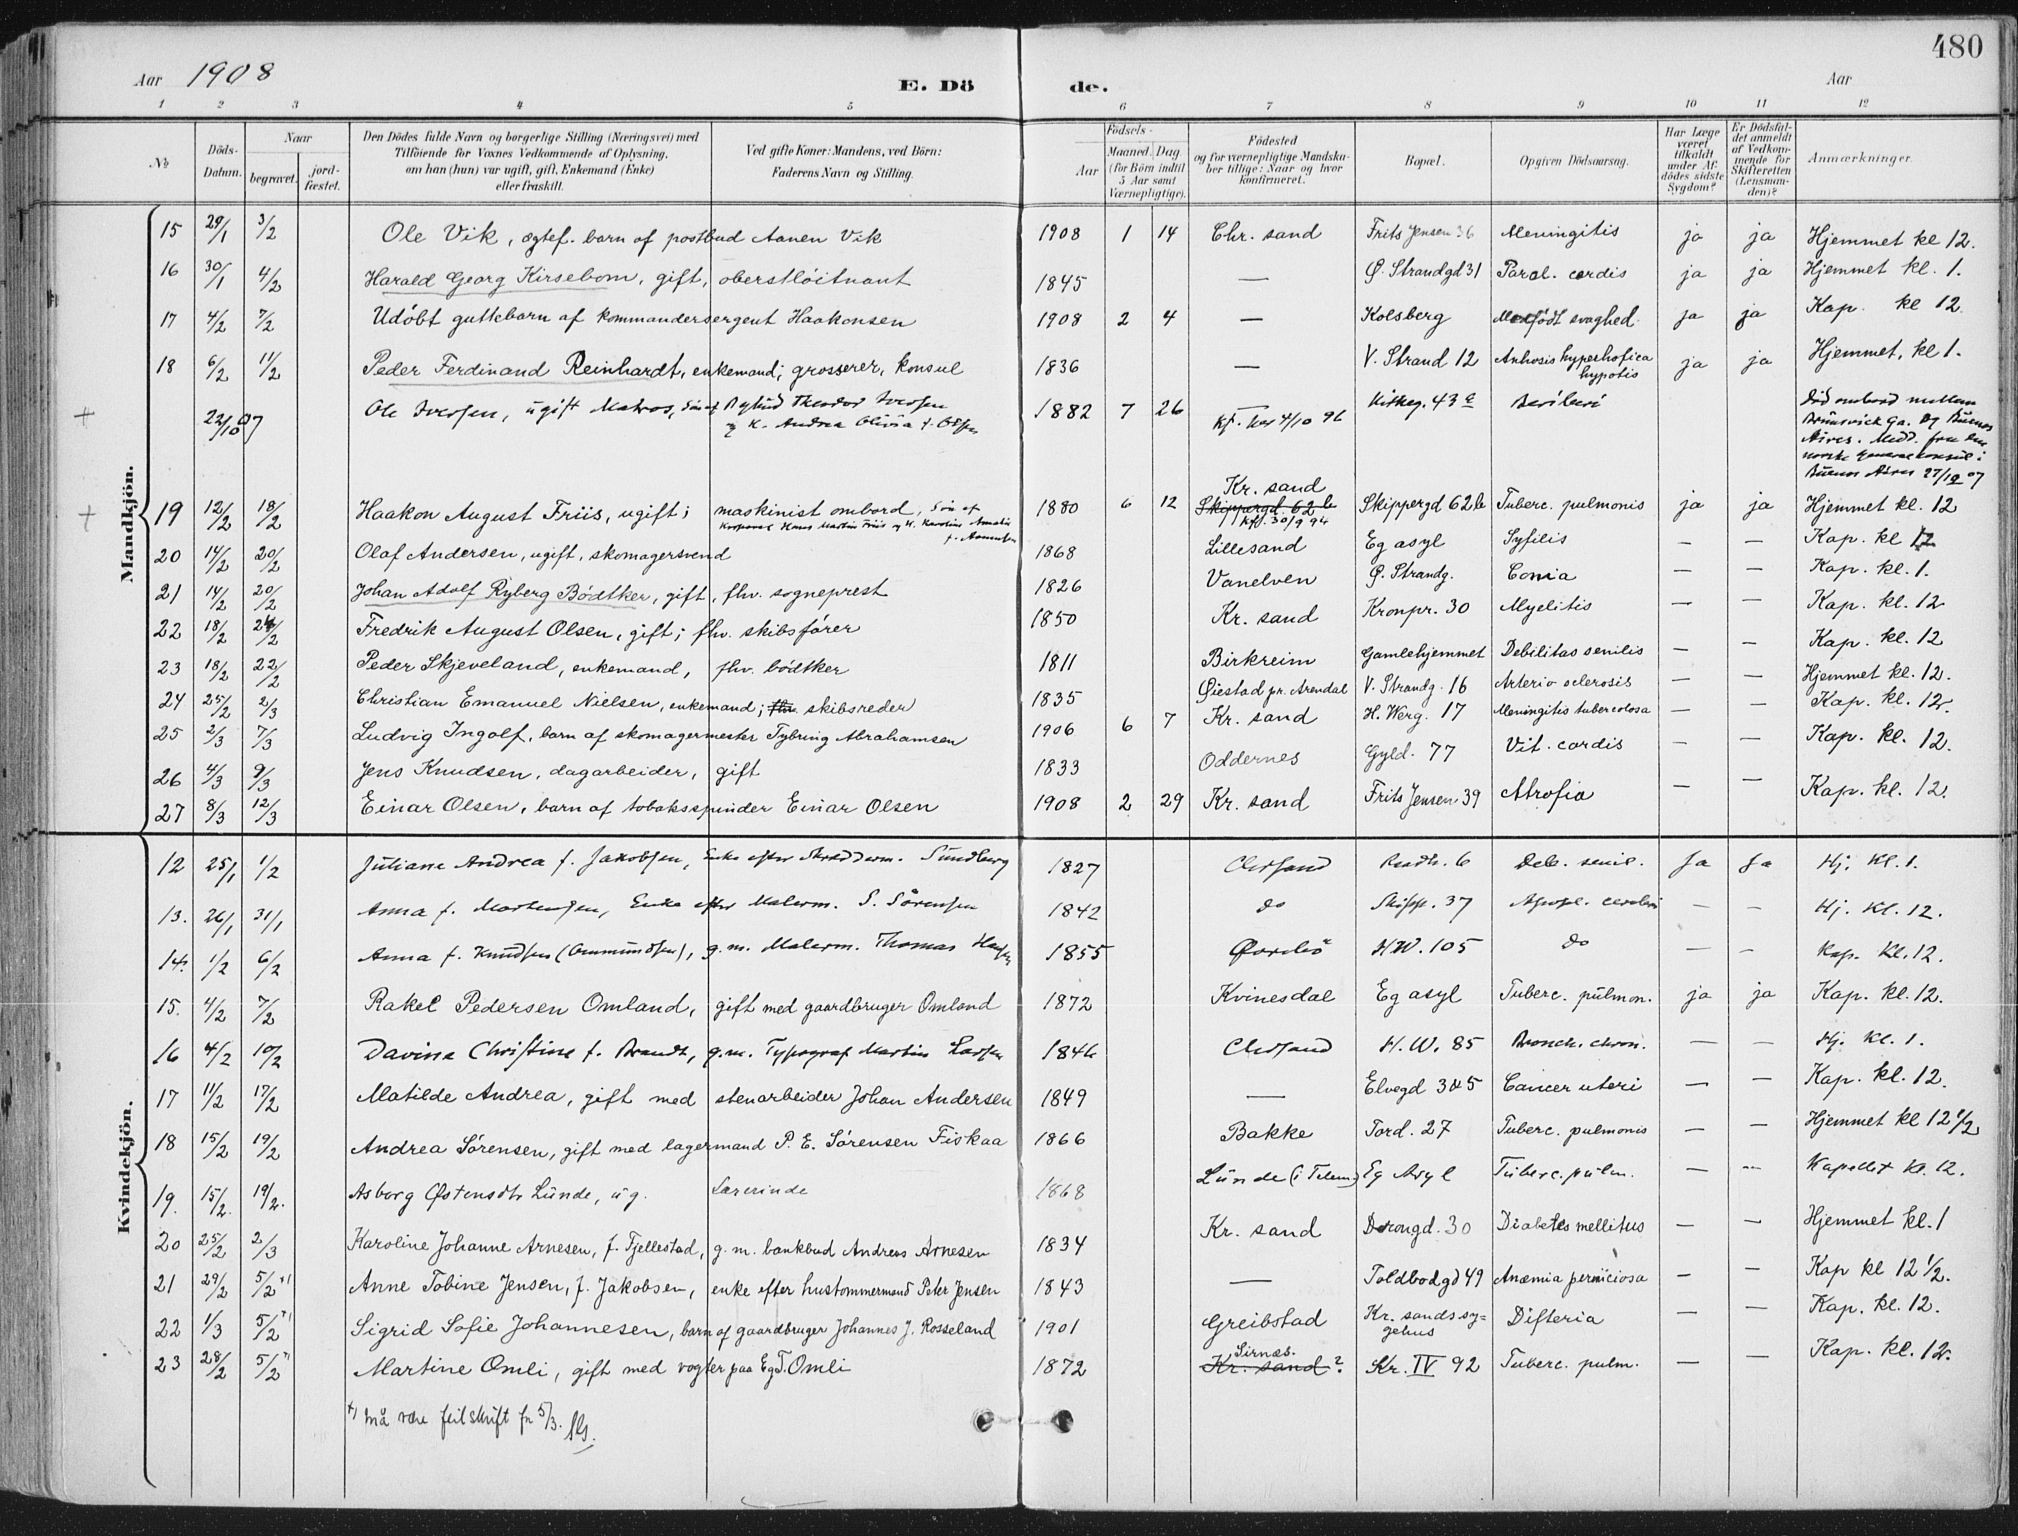 480
Aar 1908 E. Dö de. Aar
1 2 3 4 5 6 7 8 9 10 11 12
№ Döds-Datum. Naar begravet. jord-fæstet. Den Dödes fulde Navn og borgerlige Stilling (Næringsvei) med Tilföiende for Voxnes Vedkommende af Oplysning, om han (hun) var ugift, gift, Enkemand (Enke) eller fraskilt. Ved gifte Koner: Mandens, ved Börn: Faderens Navn og Stilling. Födsels- Aar Maaned. Dag. (for Börn indtil 5 Aar samt Værnepligtige). Födested og for værnepligtige Mandska-ber tillige: Naar og hvor konfirmeret. Bopæl. Opgiven Dödsaarsag. Har Læge været tilkaldt under Af-dödes sidste Sygdom? Er Dödsfal-det anmeldt af Vedkom-mende for Skifteretten (Lensman-den)? Anmærkninger.
Mandkjön.
15 29/1 3/2 Ole Vik, ægtef. barn af postbud Aanen Vik 1908 1 14 Chr. sand Frits Jensen 36 Meningitis ja ja Hjemmet kl 12.
16 30/1 4/2 Harald Georg Kirsebom, gift, oberstløitnant 1845 — Ø. Strandgd 31 Paral. cordis ja ja Hjemmet kl. 1.
17 4/2 7/2 Udøbt guttebarn af kommandersergent Haakonsen 1908 2 4 — Kolsberg Medfødt svaghed. ja ja Kap. kl 12.
18 6/2 11/2 Peder Ferdinand Reinhardt, enkemand; grosserer, konsul 1836 — V. Strand 12 hypotis ja ja Hjemmet, kl 1.
+ 22/10 07 Ole Iversen, ugift Matros, Søn af Bybud Theodor Iversen og K. Andrea Olivia f. Olsen 1882 7 26 — Kf. her 4/10 96 Kirkeg. 43 a Beriberi Død ombord mellem Brunswick Ga. og Buenos Aires. Medd. fra den norske Generalkonsul i Buenos Aires 27/12 07
+ 19 12/2 18/2 Haakon August Friis, ugift; maskinist ombord, Søn af Hans Martin Friis og H. Karoline Amalie f. 1880 6 12 Kr. sand Skippergd. 62 b Kfd. 30/9 94 Skippergd 62 b Tuberc. pulmonis ja ja Hjemmet kl. 12
20 14/2 20/2 Olaf Andersen, ugift, skomagersvend 1868 Lillesand Eg asyl Syfilis — — Kap. kl 12
21 14/2 20/2 Johan Adolf Ryberg Bödtker, gift, fhv. sogneprest 1826 Vanelven Ø. Strandg. Coma — — Kap. kl. 1.
22 18/2 24/2 Fredrik August Olsen, gift; fhv. skibsfører 1850 Kr. sand Kronpr. 30 Myelitis — — Kap. kl. 12
23 18/2 22/2 Peder Skjeveland, enkemand, fhv. bødtker 1811 Birkreim Gamlehjemmet Debilitas senilis — — Kap. kl. 12
24 25/2 2/3 Christian Emanuel Nielsen, enkemand; fhv. skibsreder 1835 Øiestad pr. Arendal V. Strandg. 16 Arterio sclerosis — — Hjemmet kl. 12.
25 2/3 7/3 Ludvig Ingolf, barn af skomagermester Tybring Abrahamsen 1906 6 7 Kr. sand H. Werg. 17 Meningitis tuberculosa — — Kap. kl. 12.
26 4/3 9/3 Jens Knudsen, dagarbeider, gift 1833 Oddernes Gyld. 77 Vit. cordis — — Kap. kl. 12.
27 8/3 12/3 Einar Olsen, barn af tobaksspinder Einar Olsen 1908 2 29 Kr. sand Frits Jensen 39 Atrofia — — Kap. kl. 12.
Kvindekjön.
12 25/1 1/2 Juliane Andrea f. Jakobsen, Enke efter Skrædderm. Sundberg 1827 Chrsand Raadh. 6 Deb. senil. Ja Ja Hj. Kl. 1.
13. 26/1 31/1 Anna f. Mortensen, Enke efter Malerm. S. Sörensen 1842 do Skipp. 37 Apopl. cerebri — — Hj. Kl. 12.
14. 1/2 6/2 Anna f. Knudsen (Ommundsen), g. m. Malerm. Thomas Hansen 1855 Øvrebø H.W. 105 do — — Kap. Kl. 12.
15. 4/2 7/2 Rakel Pedersen Omland, gift med gaardbruger Omland 1872 Kvinesdal Eg asyl Tuberc. pulmon. ja ja Kap. kl. 12.
16 4/2 10/2 Davine Christine f. Brandt, g. m. Typograf Martin Larsen 1846 Chrsand H. W. 85 Bronch. chron. — — Hj. Kl. 1.
17 11/2 17/2 Matilde Andrea, gift med stenarbeider Johan Andersen 1849 — Elvegd 3 & 5 Cancer uteri — — Kap. kl. 12.
18 15/2 19/2 Andrea Sørensen, gift med lagermand P. E. Sørensen Fiskaa 1866 Bakke Tord. 27 Tuberc. pulmonis — — Hjemmet kl 12 1/2
19. 15/2. 19/2. Asborg Østensdtr Lunde, ug. Lærerinde 1868 Lunde (i Telem.) Eg Asyl Tuberc. pulm. — — Kapellet kl. 12.
20 25/2 2/3 Karoline Johanne Arnesen, f. Fjellestad, g. m. bankbud Andreas Arnesen 1834 Kr. sand Dronngd. 30 Diabetes mellitus — — Hjemmet kl. 1
21 29/2 5/2 +) Anne Tobine Jensen, f. Jakobsen, enke efter hustommermand Peter Jensen 1843 — Toldbodgd 49 Anæmia perniciosa — — Kap kl 12 1/2.
22 1/3 5/2 +) Sigrid Sofie Johannesen, barn af gaardbruger Johannes J. Rosseland 1901 Greibstad Kr. sands sy-gehus Difteria — — Kap. kl. 12.
23 28/2 5/2 +) Martine Omli, gift med vogter paa Eg T. Omli 1872 Sirnæs. Kr. sand? Kr. IV 92 Tuberc. pulm. — — Kap. kl. 12.
+) må være feilskrift for 5/3.